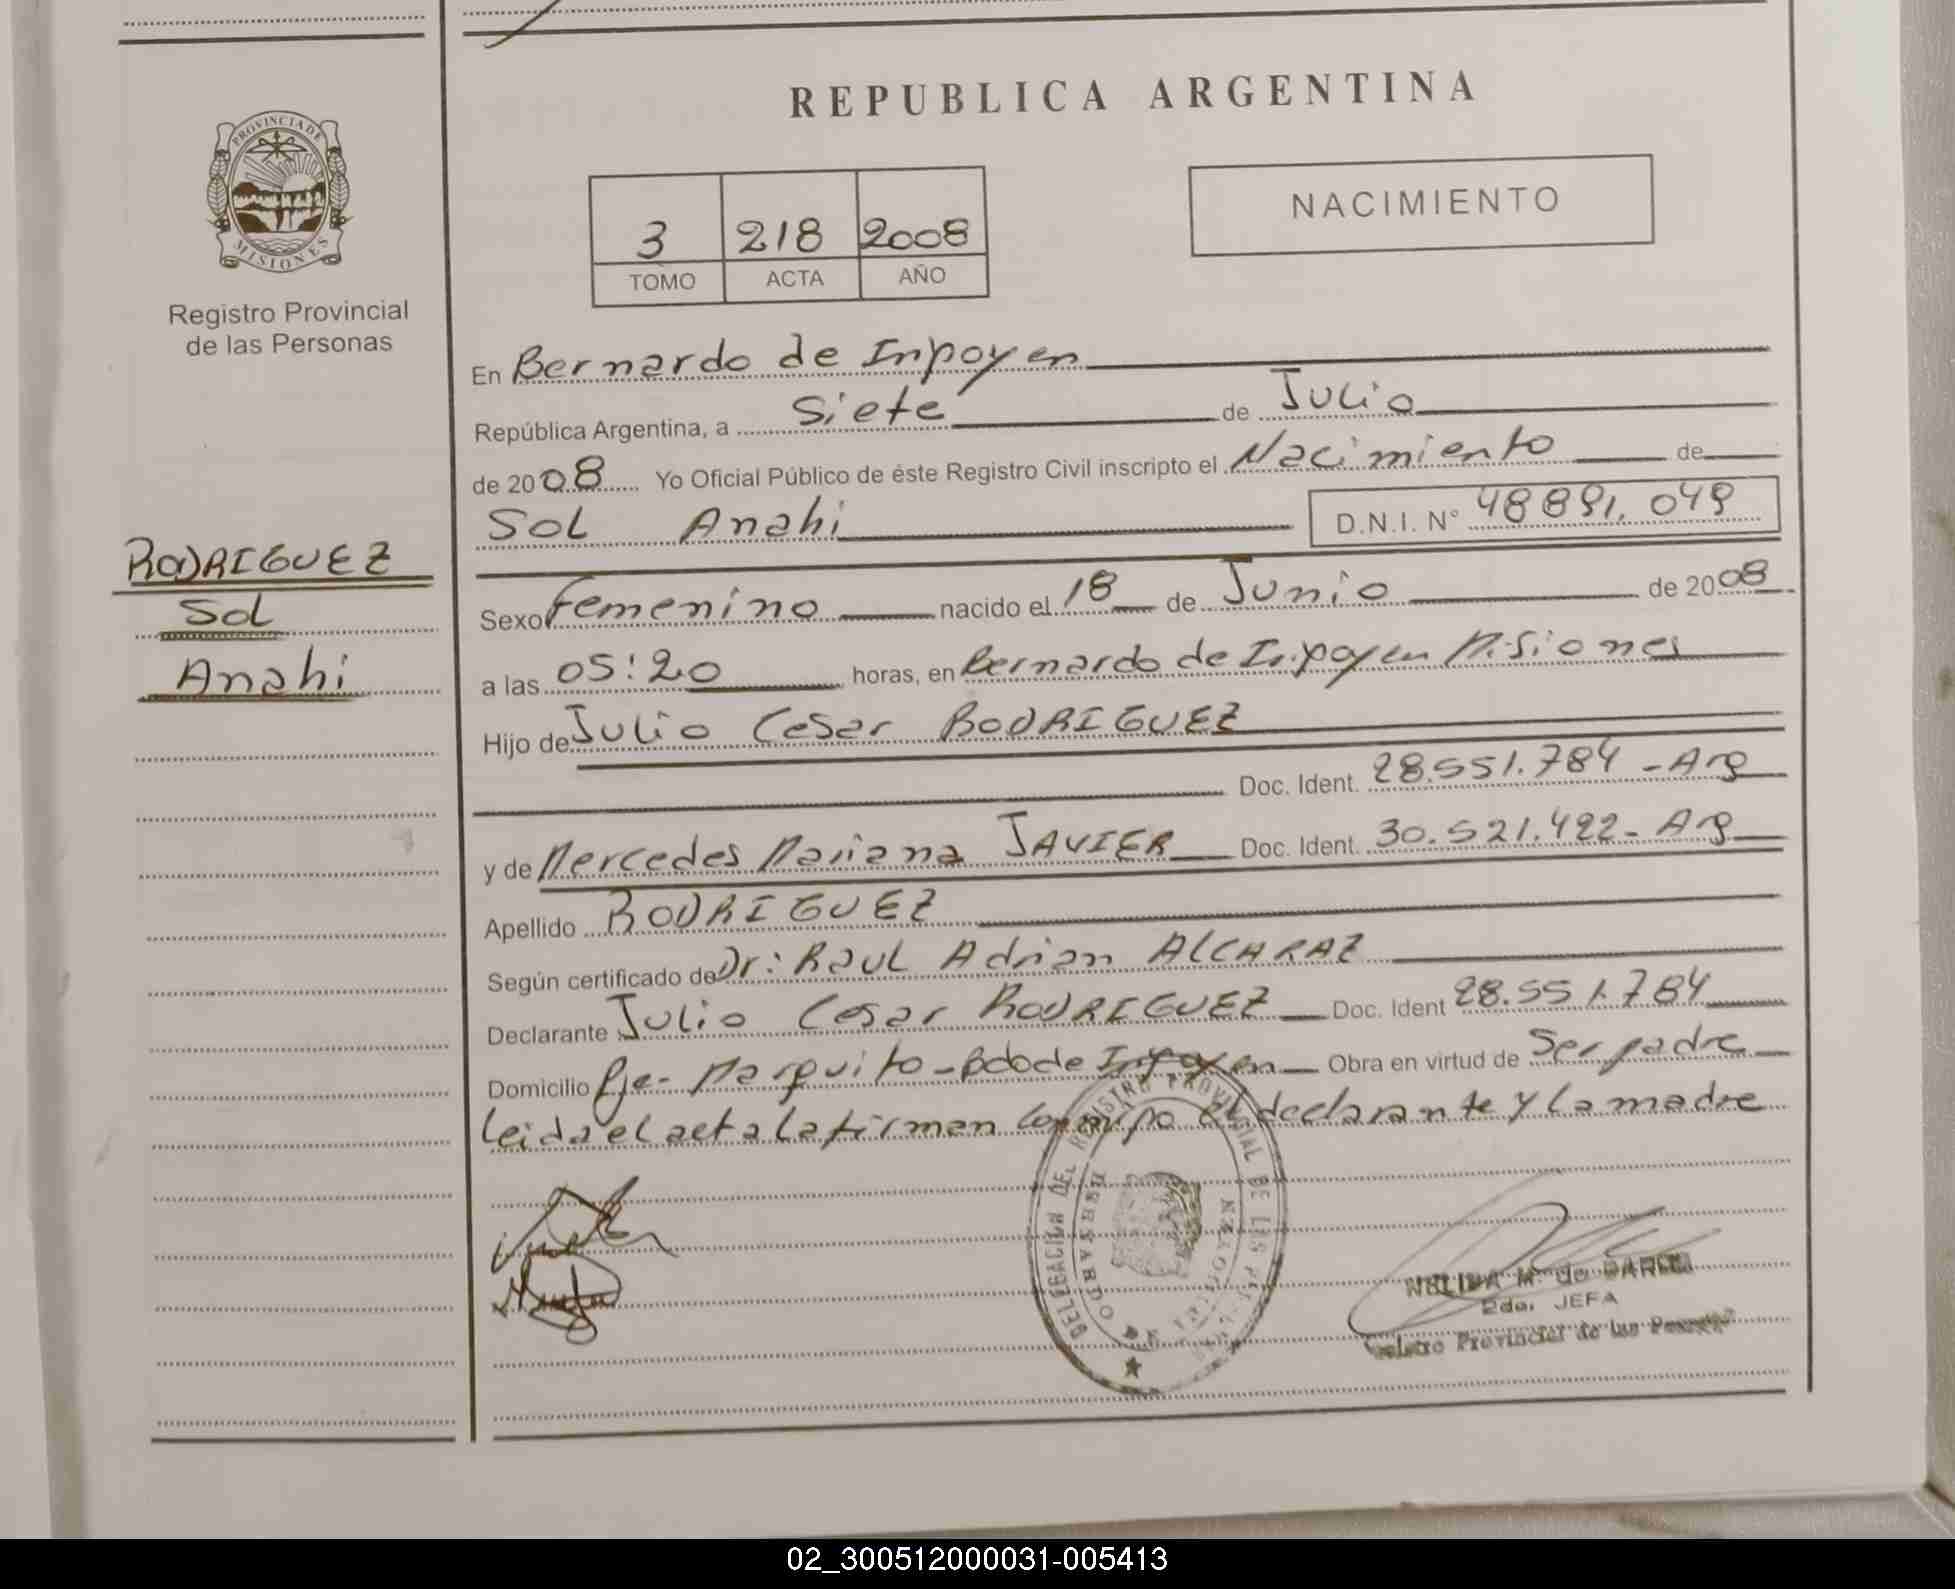 REPUBLICA ARGENTINA
PROVINCIA DE
MISIONES
Registro Provincial
de las Personas
3 218 2008
TOMO ACTA AÑO
NACIMIENTO
RODRIGUEZ
Sol
Anahi
En Bernardo de Irigoyen
República Argentina, a Siete de Julio
de 2008 Yo Oficial Público de éste Registro Civil inscripto el Nacimiento de
SOL Anahi D.N.I. Nº 48891.049
Sexo Femenino nacido el 18 de Junio de 2008
a las 05:20 horas, en Bernardo de Irigoyen Misiones
Hijo de Julio Cesar RODRIGUEZ
Doc. Ident. 28.551.784 - Arg
y de Mercedes Mariana JAVIER Doc. Ident. 30.521.422 - Arg
Apellido RODRIGUEZ
Según certificado de Dr: Raul Adrian ALCARAZ
Declarante Julio Cesar RODRIGUEZ Doc. Ident 28.551.784
Domicilio Pje- Marquito - Bdo de Irigoyen Obra en virtud de Ser padre
Leida el acta la firman conmigo el declarante y la madre
DELEGACION DEL REGISTRO PROVINCIAL DE LAS
BERNARDO
NELIDA M. de
2da. JEFA
Registro Provincial de las Personas
02_300512000031-005413